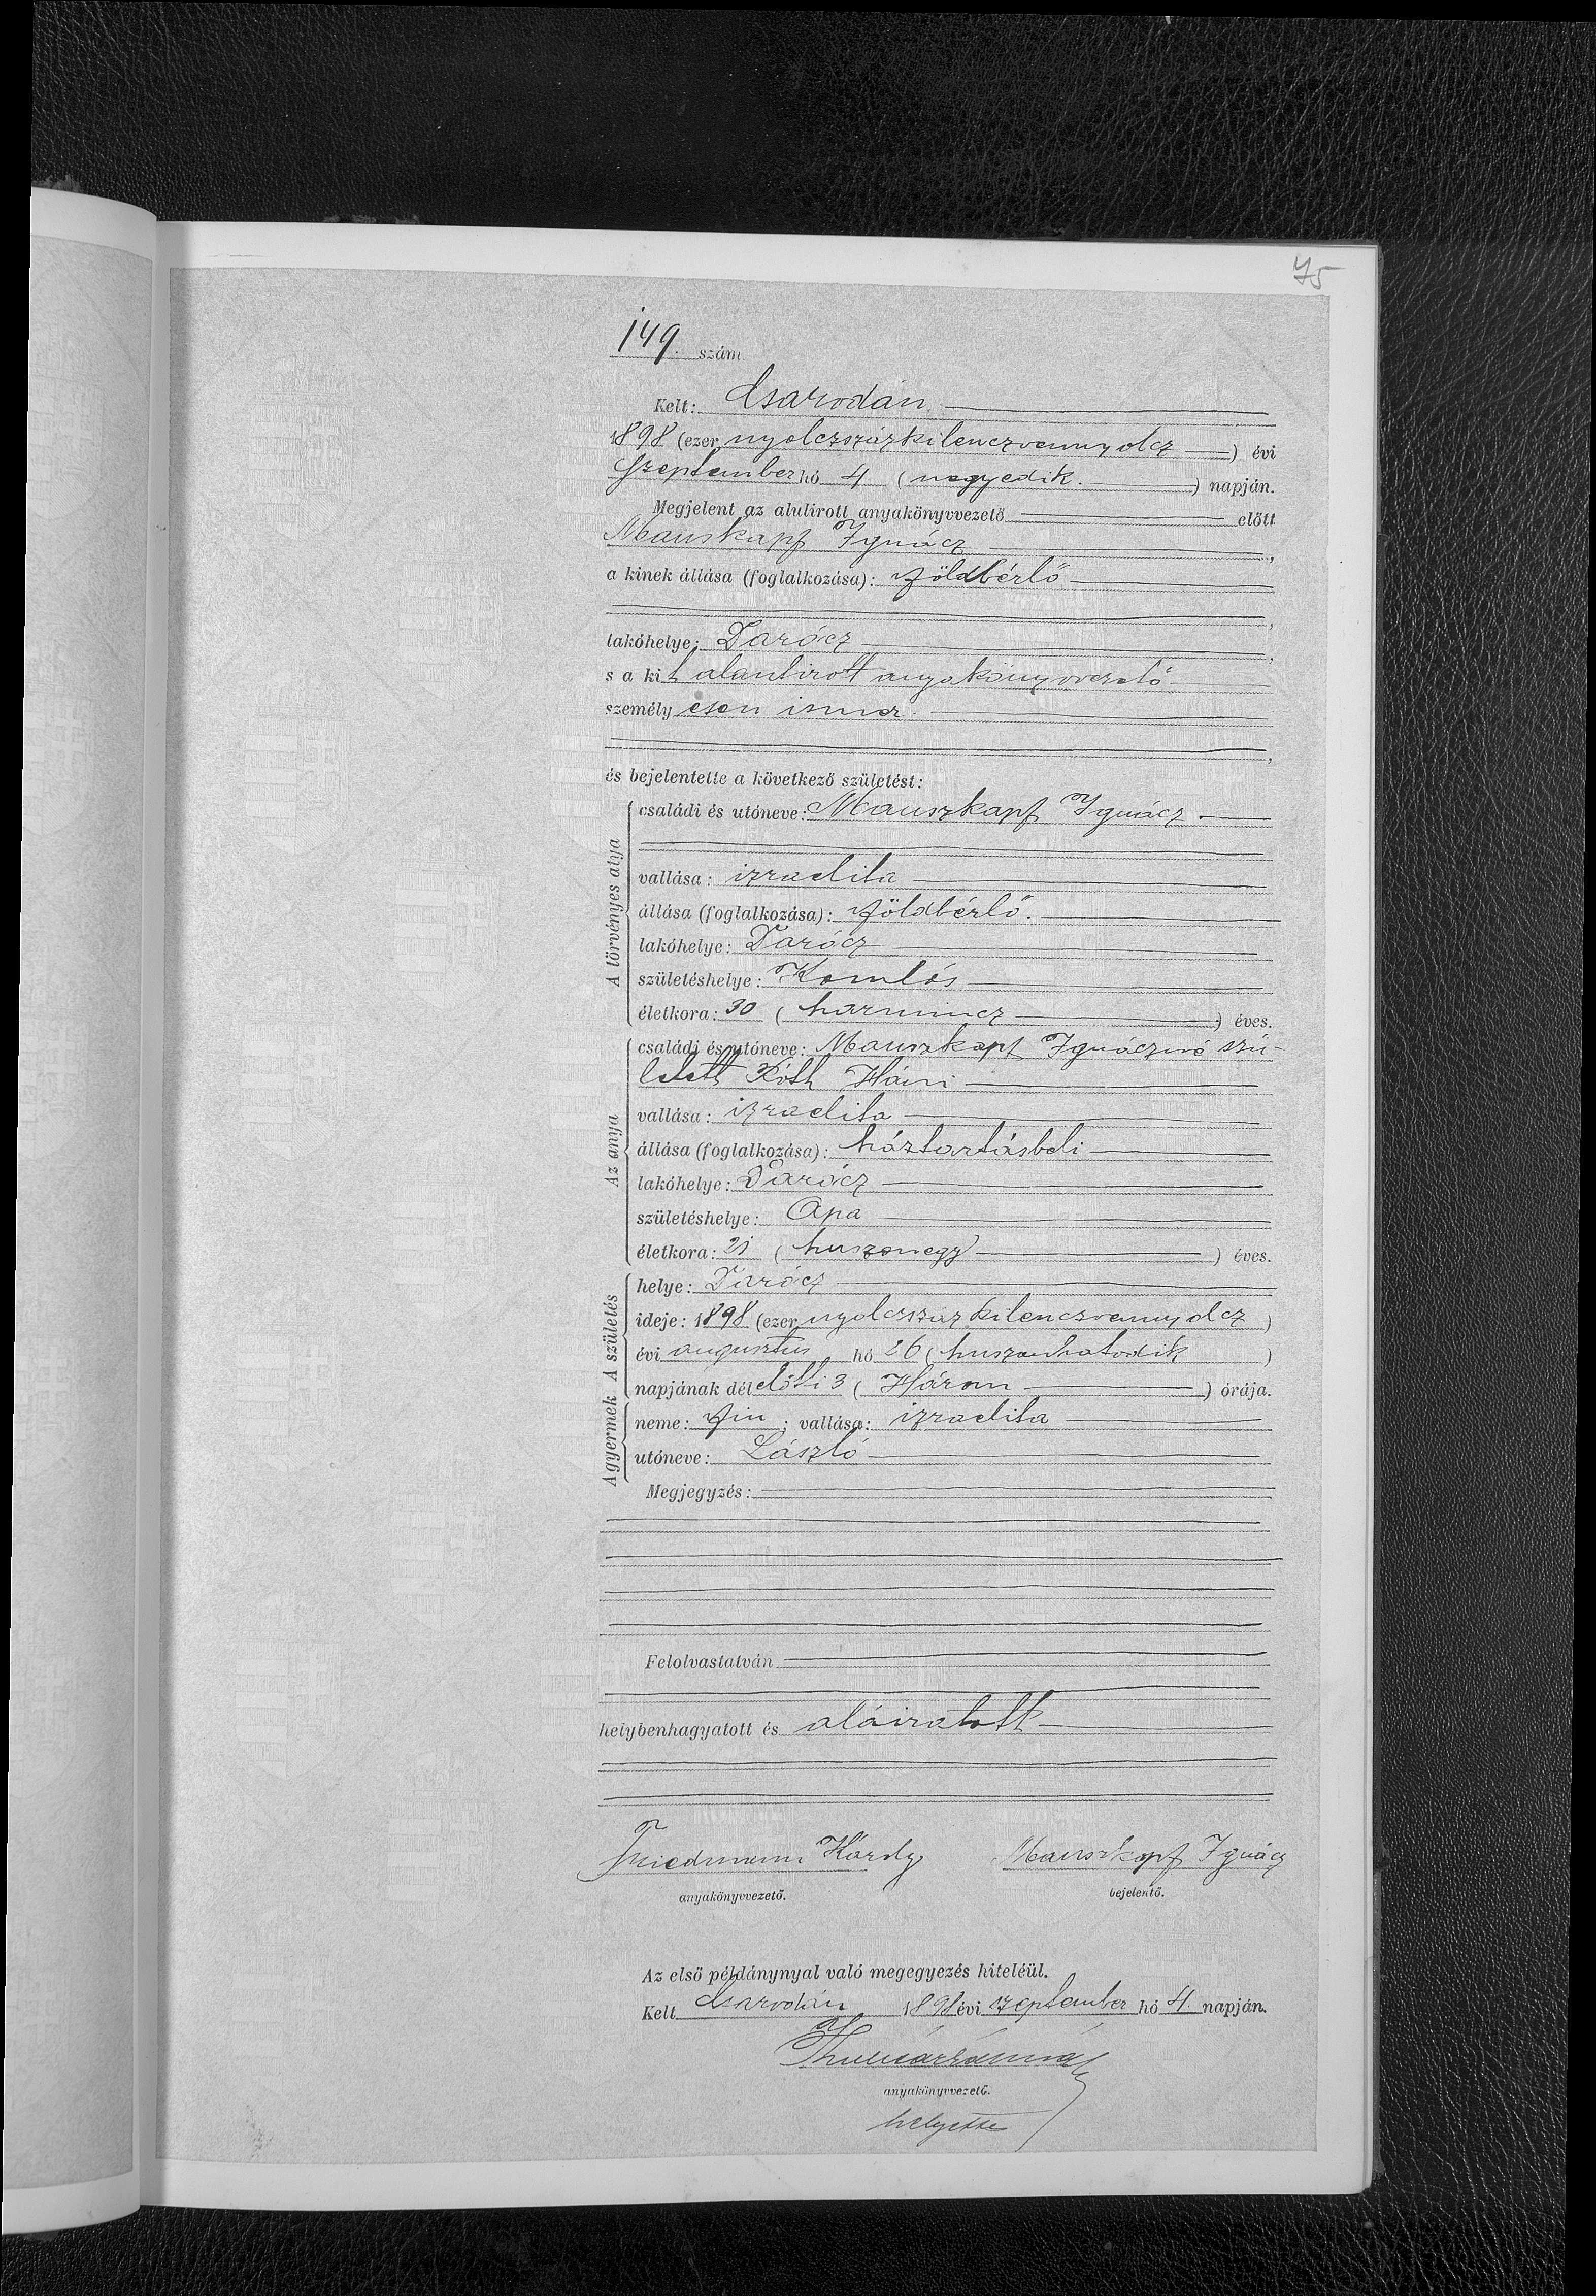 75
149. szám.
Kelt: Csarodán
1898 (ezer nyolczszázkilenczvennyolcz) évi
Szeptember hó 4 (negyedik.) napján.
Megjelent az alulirott anyakönyvvezető előtt
Mauskapf Ignácz,
a kinek állása (foglalkozása): földbérlő
,
lakóhelye: Darócz,
s a kit alantirott anyakönyvvezető
személyesen ismer.
,
és bejelentette a következő születést:
A törvényes atya
családi és utóneve: Mauszkapf Ignácz
vallása: izraelita
állása (foglalkozása): földbérlő.
lakóhelye: Darócz
születéshelye: Komlós
életkora: 30 (harmincz) éves.
Az anya
családi és utóneve: Mauszkapf Ignáczné szü-
letett Róth Háni
vallása: izraelita
állása (foglalkozása): háztartásbeli
lakóhelye: Darócz
születéshelye: Apa
életkora: 21 (huszonegy) éves.
A születés
helye: Darócz
ideje: 1898 (ezer nyolczszáz kilenczvennyolcz)
évi augusztus hó 26 (huszonhatodik)
napjának délelőtti 3 (Három) órája.
A gyermek
neme: fiu; vallása: izraelita
utóneve: László
Megjegyzés:
Felolvastatván
helybenhagyatott és aláiratott
Friedmann Károly Mauszkopf Ignácz
anyakönyvvezető. bejelentő.
Az első példánynyal való megegyezés hiteléül.
Kelt Csarodán 1898 évi szeptember hó 4. napján.
anyakönyvvezető.
helyettes